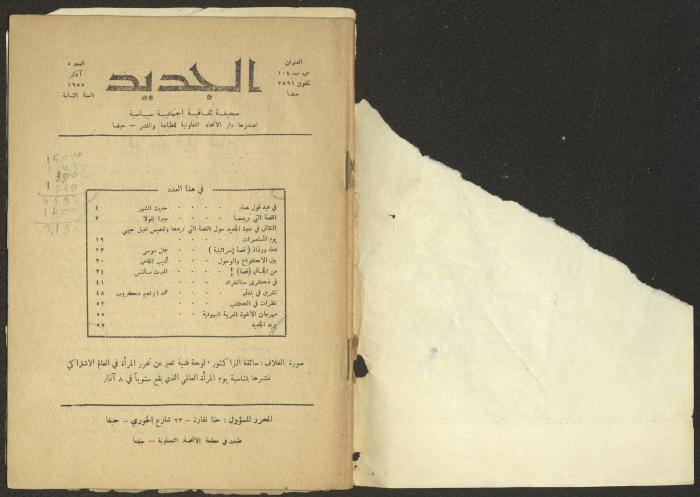 العدد ٥
آذار
١٩٥٥
السنة الثانية
الجديد
العنوان
ص. ب ١٠٤
تلفون ٣٥٩١
حيفا
صحيفة ثقافية اجتماعية سياسية
تصدرها دار الاتحاد التعاونية للطباعة والنشر – حيفا
في هذا العدد
في عيد قول هعام . . . . حديث الشهر ٤
القصة التي نريدها . . . . جبرا نقولا ٧
النقاش في ندوة الجديد حول القصة التي نريدها وتلخيص اميل حبيبي
يوم المستعمرات . . . . ١٩
دماء ورذاذ (قصة إسرائيلية) . . جمال موسى ٢٣
بين الاكواخ والوحول . . . . أديب القاص ٣٠
من الجاني (قصة)! . . . . البرت مالتس ٣٤
في ذكرى ستالنغراد . . . . ٤١
تشرين في بلدي . . . محمد ابراهيم دكروب ٤٨
نظرات في الكتب . . . . ٥٣
مهرجان الاخوة العربية اليهودية . . . ٥٥
بريد الجديد . . . . ٥٧
صورة الغلاف: سائقة التراكتور، لوحة فنية تعبر عن تحرر المرأة في العالم الاشتراكي
ننشرها بمناسبة يوم المرأة العالمي الذي يقع سنوياً في ٨ آذار
المحرر المسؤول: حنا نقارة – ٢٣ شارع الخوري – حيفا
طبعت في مطبعة الاتحاد التعاونية – حيفا